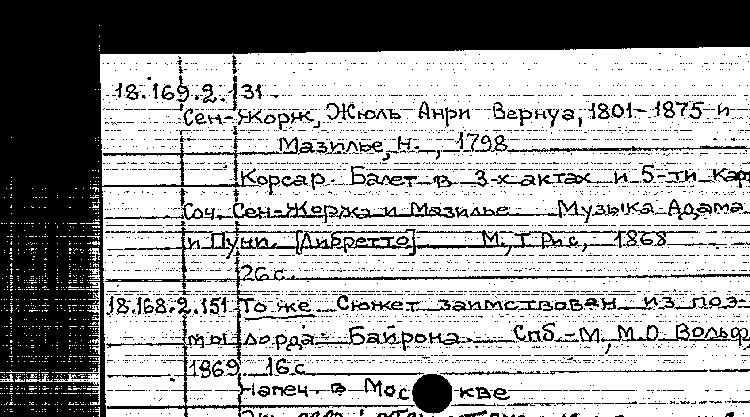 18.169.2.131
Сен-Жорж, Жюль Анри Вернуа, 1801-1875 и
Мазилье, Н. , 1798
Корсар. Балет в 3-х актах и 5-ти кар
Соч. Сен-Жоржа и Мазилье. Музыка Адама
и Пуни. [Либретто] М., Т Рис, 1868
26с.
18.168.2.151 То же. Сюжет заимствован из поэ-
мы лорда Байрона. Спб.-М., М.О. Вольф,
1869 16с
Напеч. в Москве